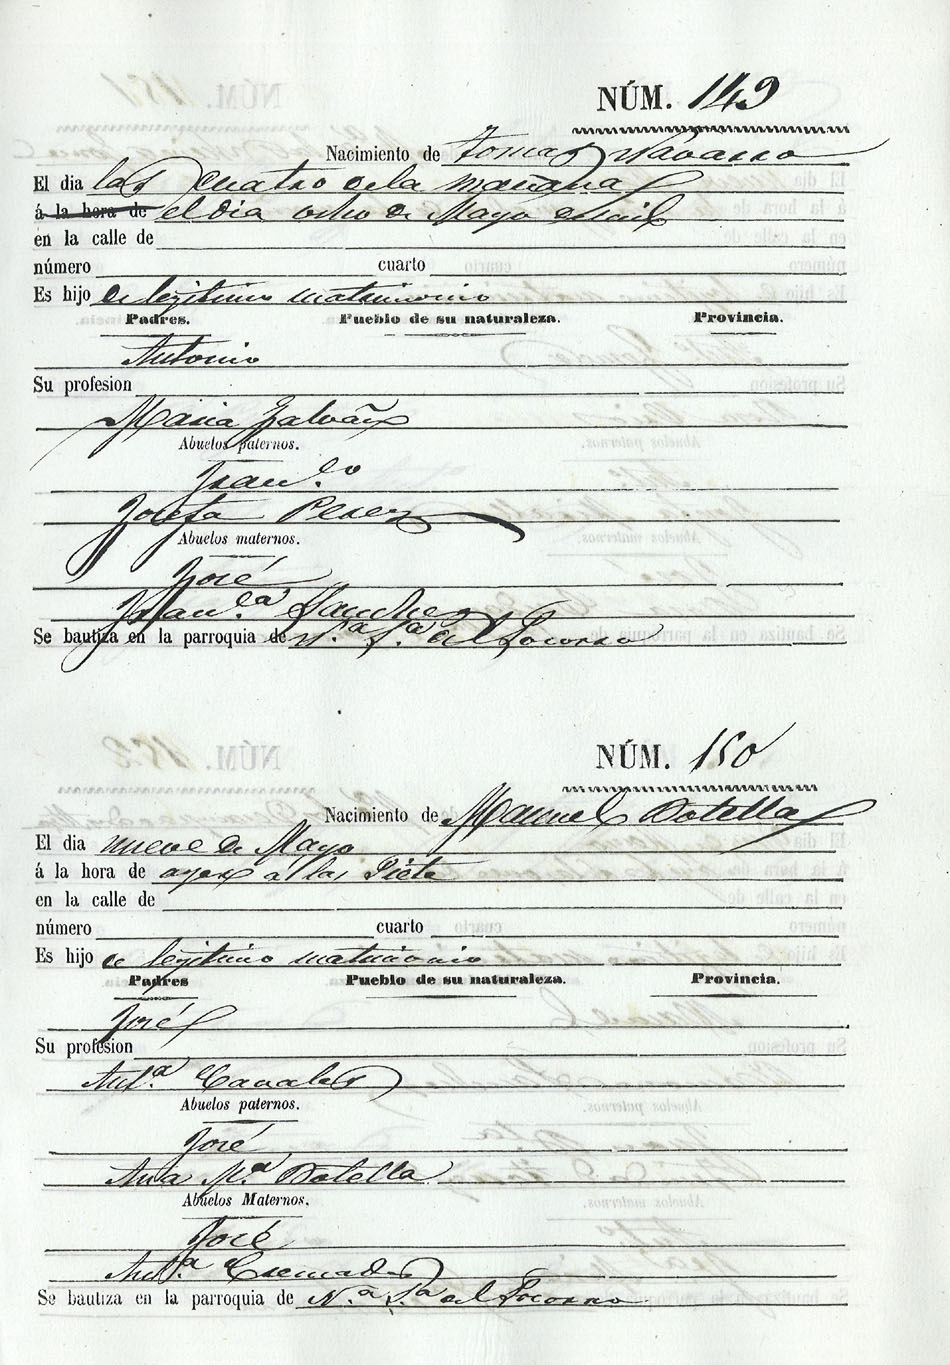 NÚM. 149
Nacimiento de Tomas Navarro
El dia las cuatro de la mañana
á la hora de el dia ocho de Mayo
en la calle de
número cuarto
Es hijo de legitimo matrimonio
Padres. Pueblo de su naturaleza. Provincia.
Antonio
Su profesion
Maria Galvañ
Abuelos paternos.
Fran.co
Josefa Perez
Abuelos maternos.
José
Fran.ca Sanchez
Se bautiza en la parroquia de N.a S.a del Socorro
NÚM. 150
Nacimiento de Manuel Botella
El dia nueve de Mayo
á la hora de ayer a las Siete
en la calle de
número cuarto
Es hijo de legitimo matrimonio
Padres Pueblo de su naturaleza. Provincia.
José
Su profesion
Ant.a
Abuelos paternos.
José
Ana M.a Botella
Abuelos Maternos.
José
Ant.a Cremades
Se bautiza en la parroquia de N.a S.a del Socorro